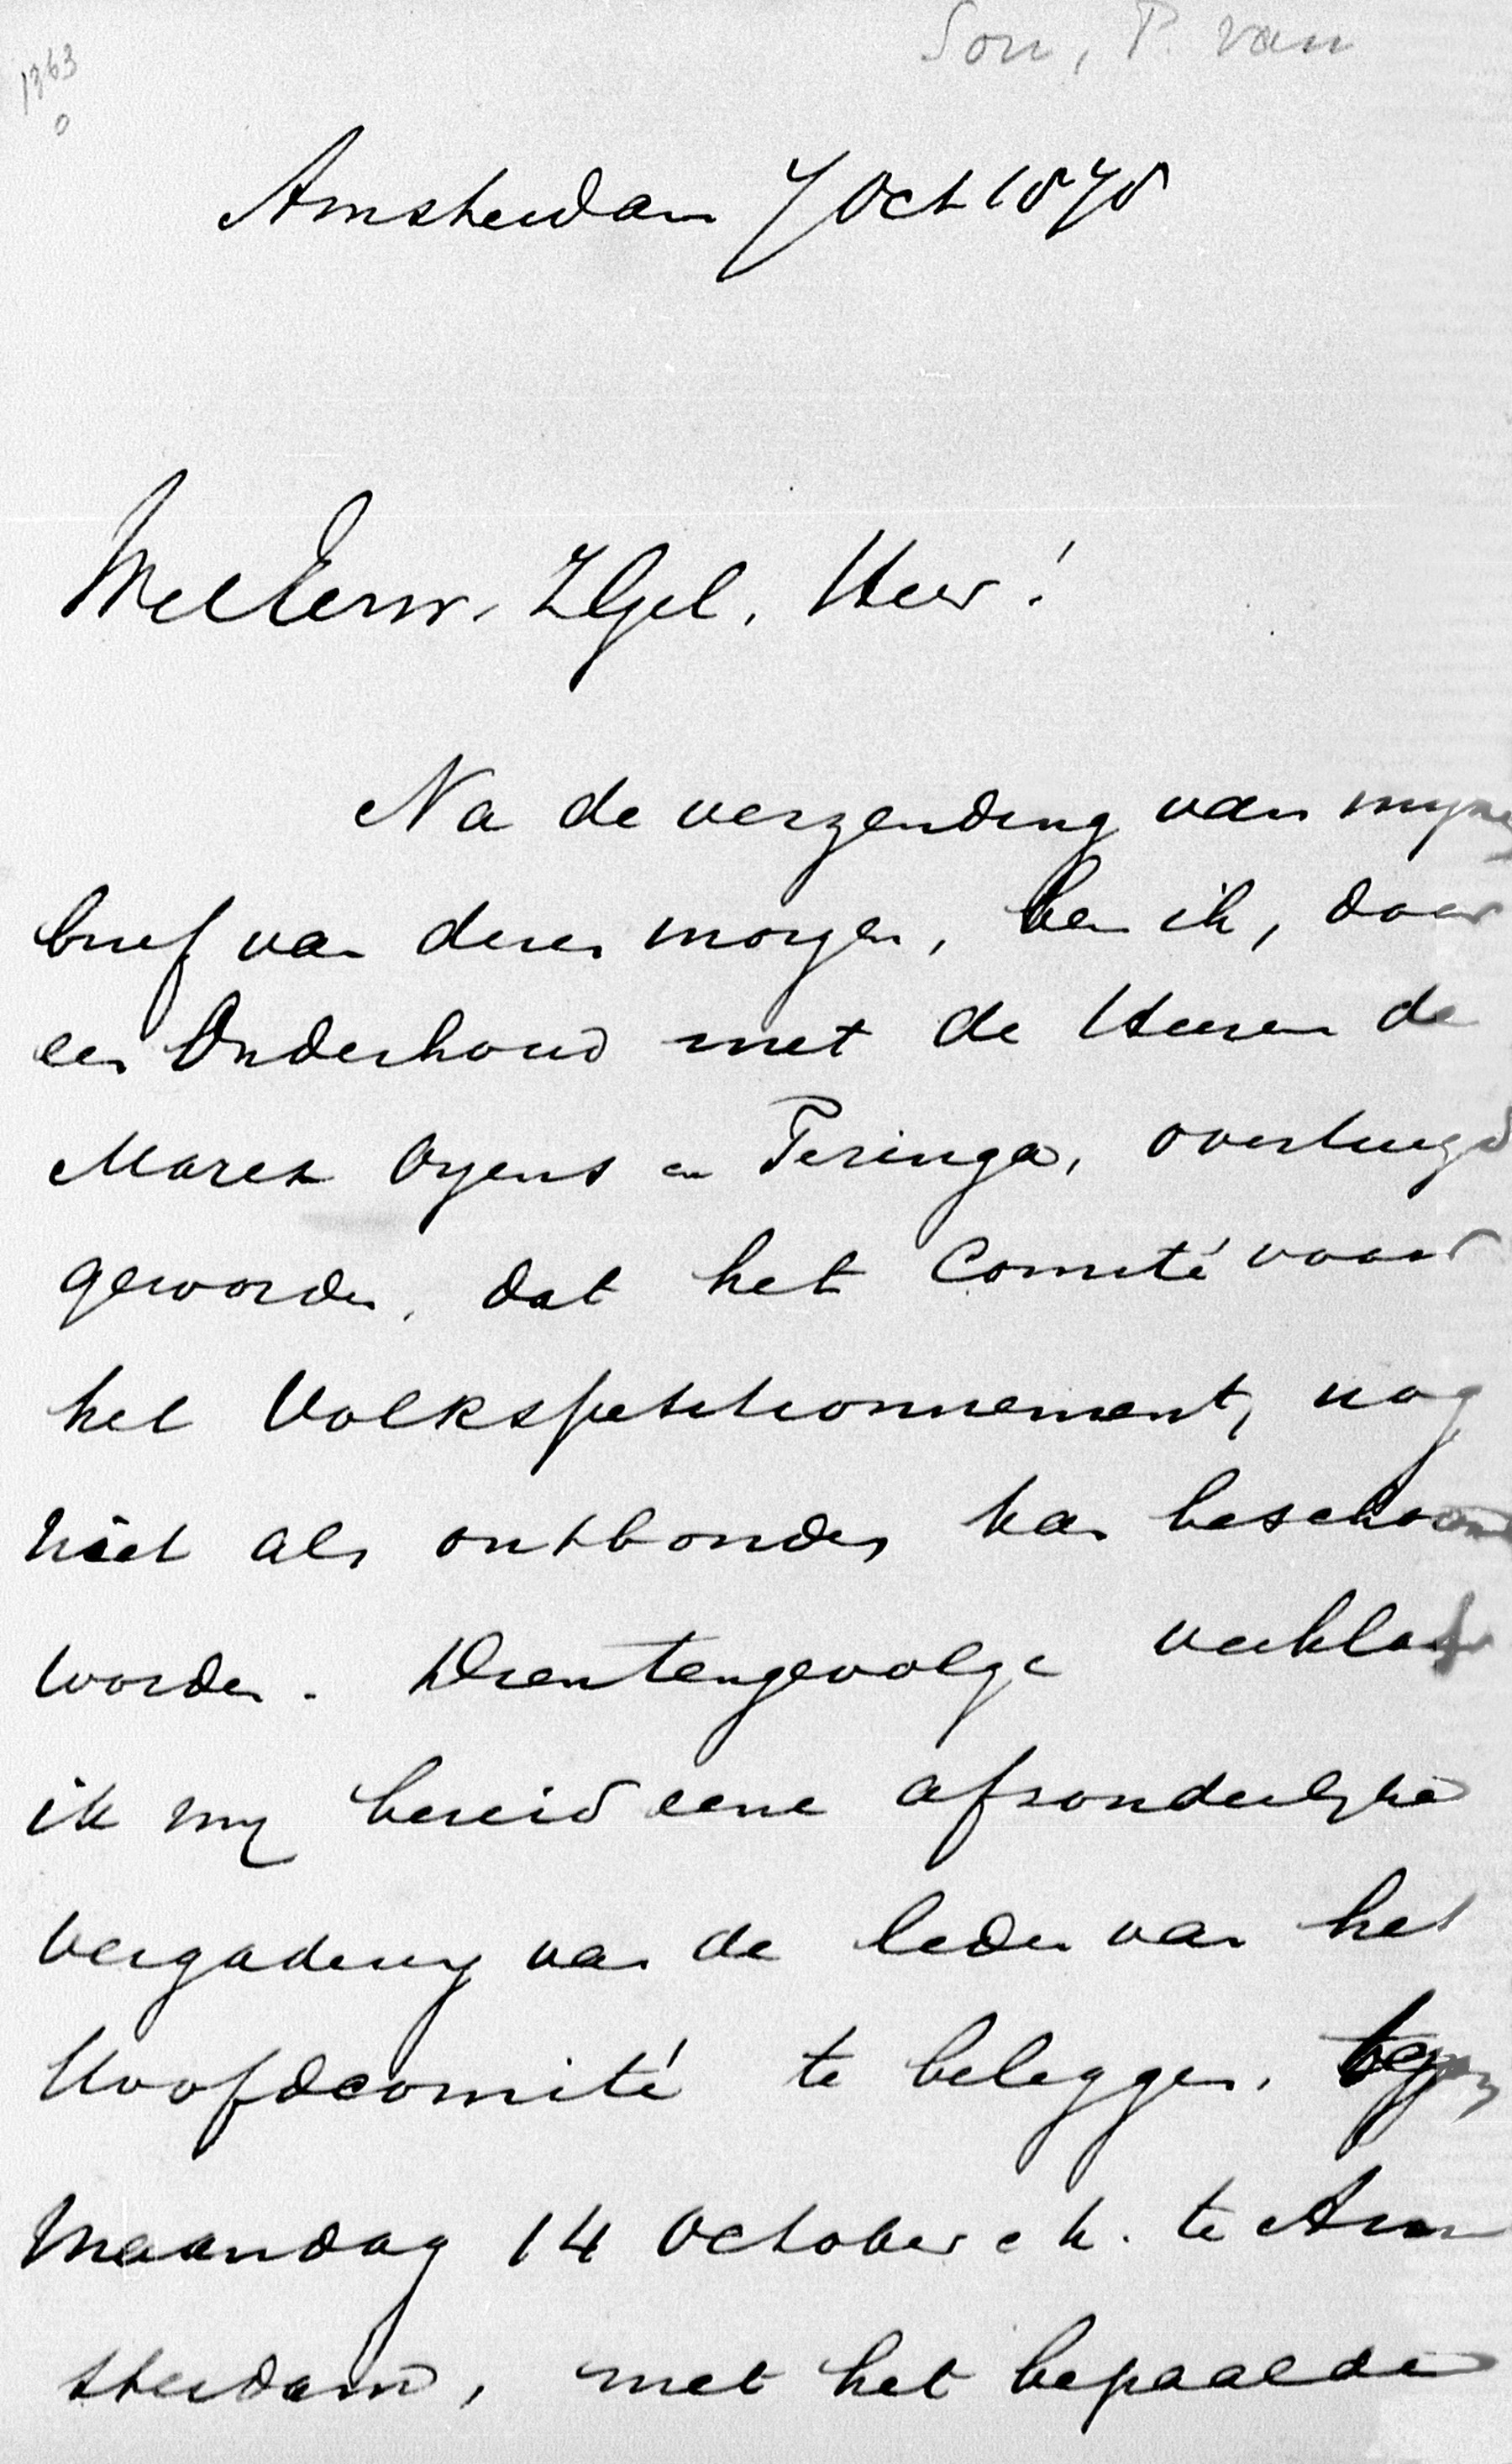 Son, P. van
1363
0
Amsterdam 7 Oct 1878
WelEerw. ZGel. Heer!
Na de verzending van mynen
brief van dezen morgen, ben ik, door
een Onderhoud met de Heeren de
Marez Oyens en Feringa, overtuigd
geworden, dat het Comité voor
het Volkspetitionnement, nog
niet als ontbonden kan beschouwd
worden. Dientengevolge verklaar
ik my bereid eene afzonderlyke
vergadering van de leden van het
Hoofdcomité te beleggen, tegen
Maandag 14 October e k. te Am
sterdam, met het bepaalde